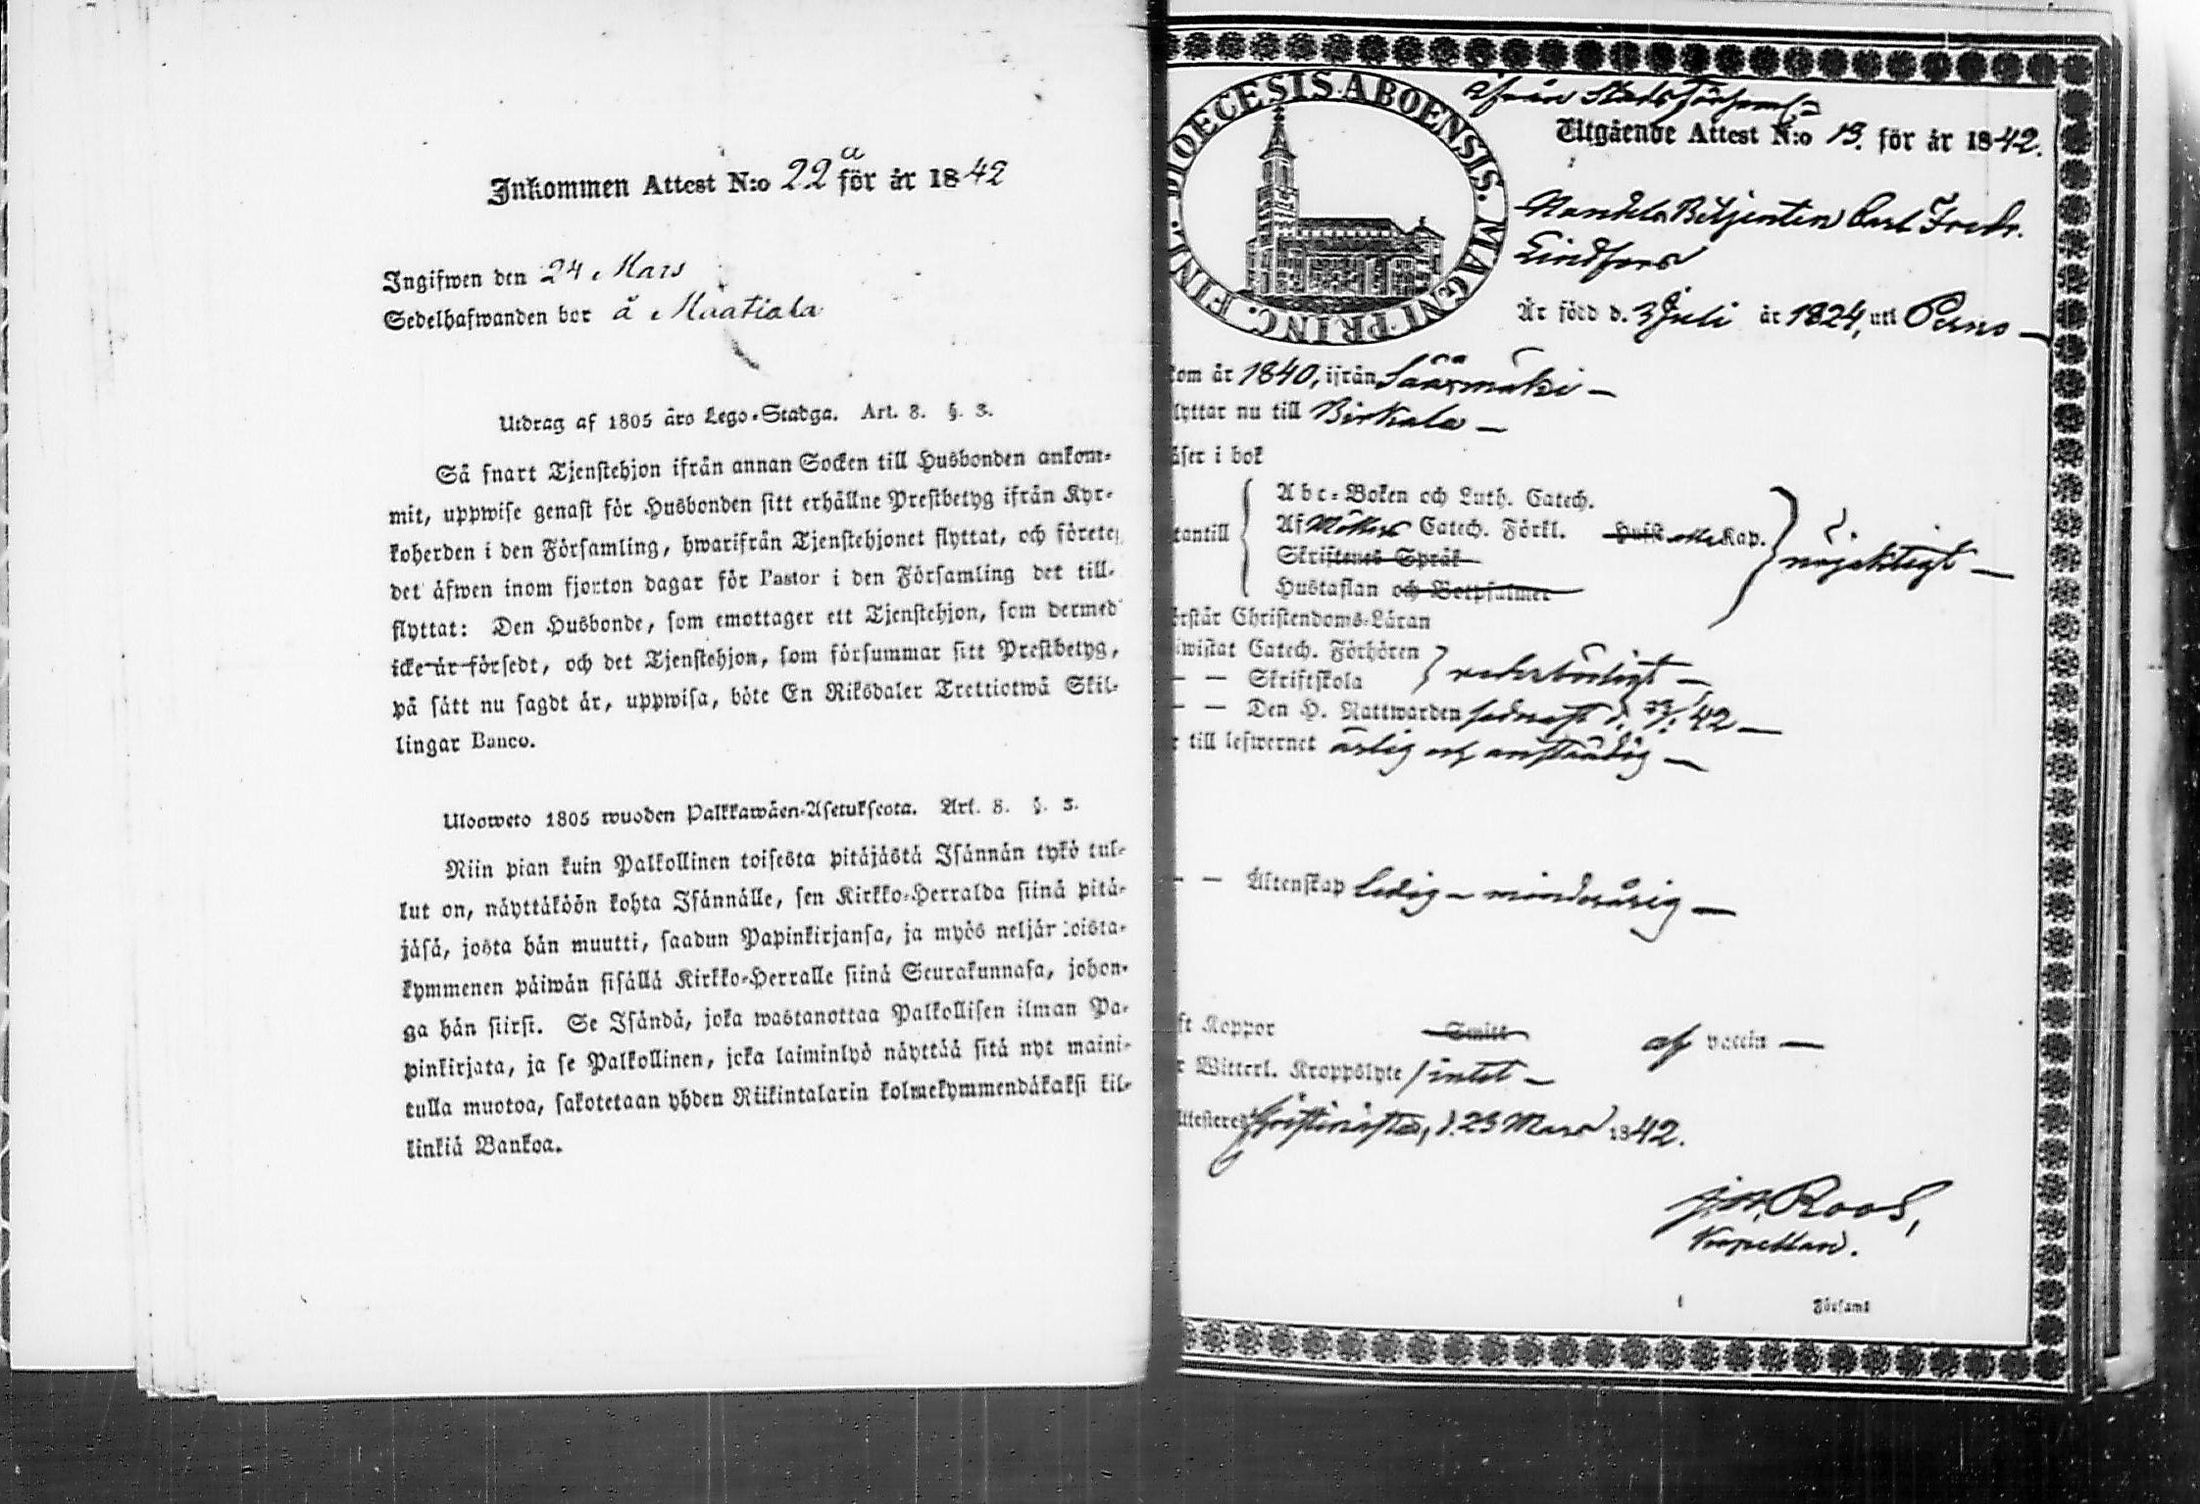 Inkommen Attest N:o 22 a för år 1842
Ingifwen den 24 Mars
Sedelhafwanden bor å Maatiala
Utdrag af 1805 års Lego-Stadga. Art. 8. §. 3.
Så snart Tjenstehjon ifrån annan Socken till Husbonden ankom-
mit, uppwise genast för Husbonden sitt erhållne Prestbetyg ifrån Kyr-
koherden i den Församling, hwarifrån Tjenstehjonet flyttat, och förete
det äfwen inom fjorton dagar för Pastor i den Församling det till-
flyttat: Den Husbonde, som emottager ett Tjenstehjon, som dermed
icke är försedt, och det Tjenstehjon, som försummar sitt Prestbetyg,
på sätt nu sagdt är, uppwisa, böte En Riksdaler Trettiotwå Skil-
lingar Banco.
Ulosweto 1805 wuoden Palkkawäen-Asetuksesta. Art. 8. §. 3.
Niin pian kuin Palkollinen toisesta pitäjästä Isännän tykö tul-
lut on, näyttäköön kohta Isännälle, sen Kirkko-Herralda siinä pitä-
jäsä, josta hän muutti, saadun Papinkirjansa, ja myös neljän toista-
kymmenen päiwän sisällä Kirkko-Herralle siinä Seurakunnasa, johon-
ga hän siirsi. Se Isändä, joka wastanottaa Palkollisen ilman Pa-
pinkirjata, ja se Palkollinen, joka laiminlyö näyttää sitä nyt maini-
tulla muotoa, sakotetaan yhden Riikintalarin kolmekymmendäkaksi kil-
linkiä Bankoa.
DIOECESIS ABOENSIS. MAGNI PRINC. FINL.
ifrån Stads Församl.
Utgående Attest N:o 13. för år 1842.
Handels Betjenten Carl Fredr.
Lindfors
Är född d. 3 Juli år 1824, uti Perno
kom år 1840, ifrån Sääxmäki
flyttar nu till Birkala
läser i bok
utantill
Abc-Boken och Luth. Catech.
Af Catech. Förkl. Kap.
Skriftenes Språk
Hustaflan och Botpsalmer
nöjaktigt
förstår Christendoms-Läran
biwistat Catech. Förhören
— — Skriftskola
wederbörligt
— — Den H. Nattwarden sednast d. /42
r till lefwernet ärlig och anständig
— — Äktenskap ledig - minderårig
ft Koppor Smitt af vaccin
r Witterl. Kroppslyte intet
Attesteres Christinestad, d. 23 Mars 1842.
Roos,
Kapellan.
Församl